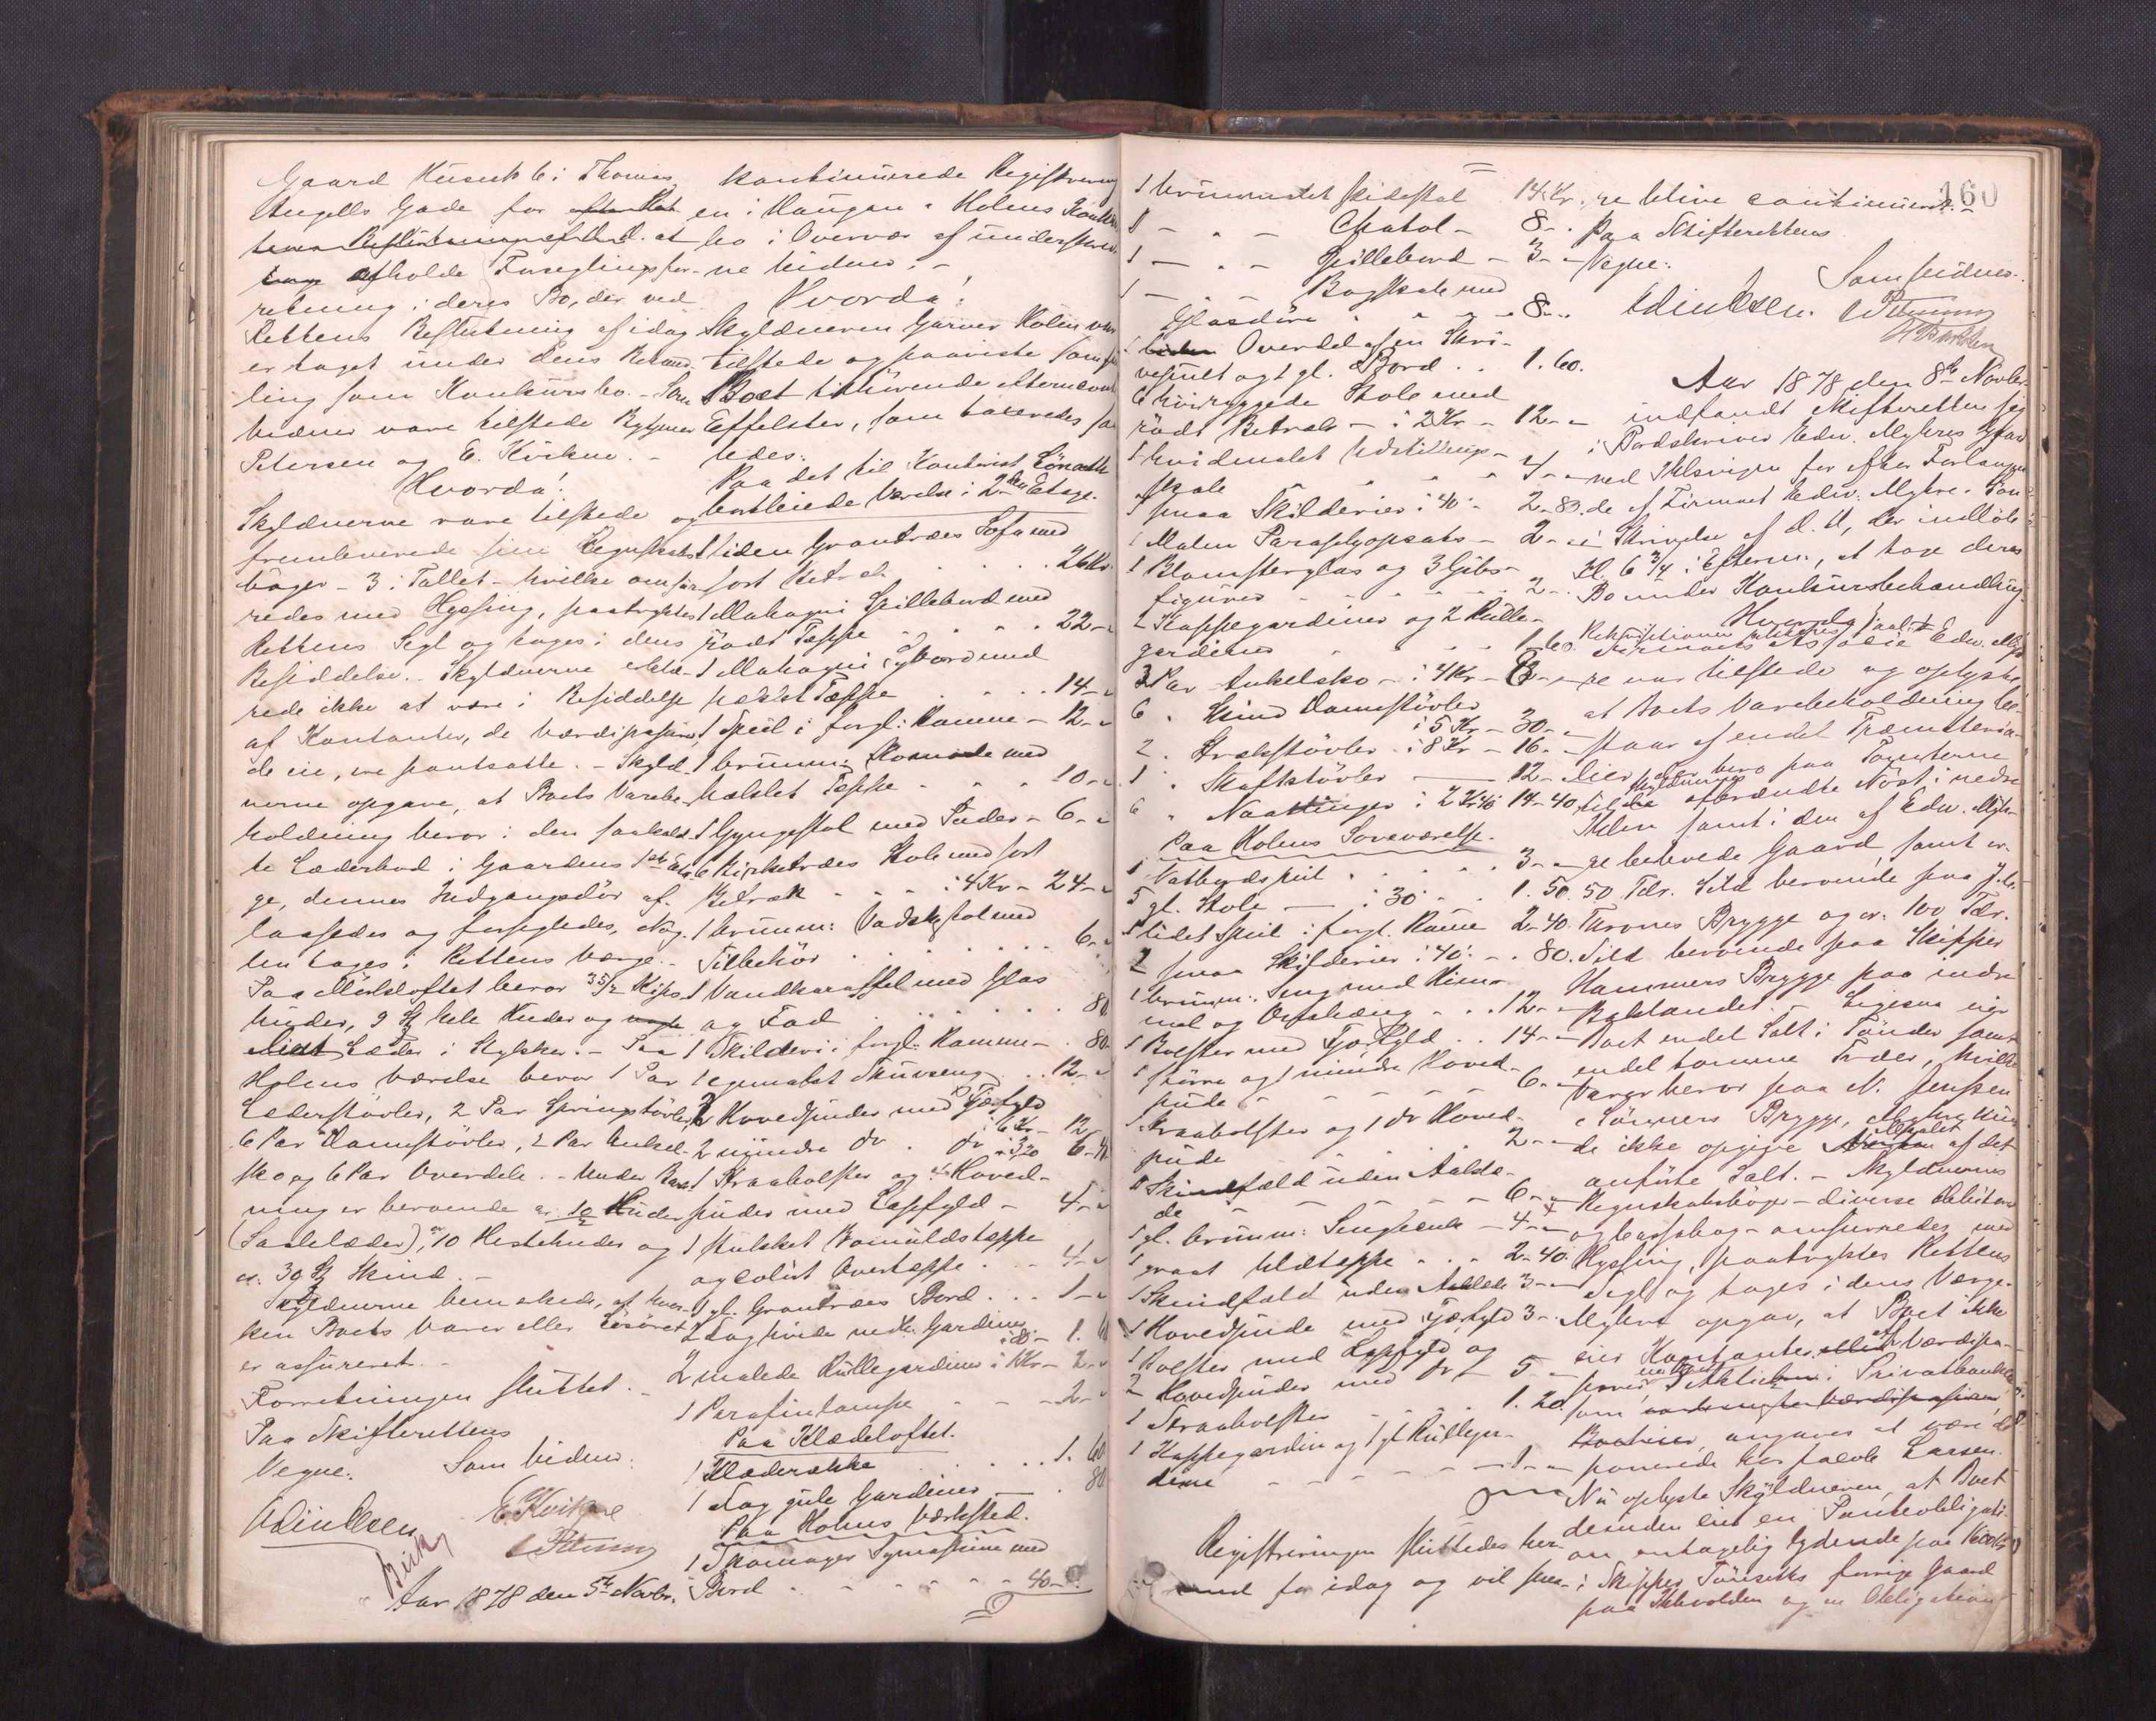 Gaard Husesk 6 i Thomas
Angells Gade for efter Ret-
tens Beslutning af d. d. at
afholde Forseglingsfor-
retning i deres Bo, der ved
Rettens Beslutning af idag
er taget under dens Behand-
ling som Konkursbo. - Som
Vidner vare tilstede
Petersen og E. Kirkne. -
Hvorda:
Skyldnerne vare tilstede og
fremleverede sine Regnskabs-
bøger - 3 i Tallet - hvilke omsnø-
redes med Hyssing, paatryktes
Rettens Segl og toges i dens
Besiddelse. - Skyldnerne erklæ-
rede ikke at være i Besiddelse
af Kontanter, de Værdipapirer,
de eie, ere pantsatte. - Skyld-
nerne opgave, at Boets Varebe-
holdning beror i den saakald-
te Læderbod i Gaardens 1ste Eta-
ge, dennes Indgangsdør af-
laasedes og forsegledes, Nøg-
len toges i Rettens Værge. -
Paa Mørkeloftet beror 35/2 Kips-
huder, 9 hele Huder og
Læder i Stykker. - Paa
Holms Værelse beror 1 Par
Læderstøvler, 2 Par Springstøvler,
6 Par Damestøvler, 2 Par Ankel-
sko og 6 Par Overdele. - Under
ning er beroende cr. 10/2 Huder
(Saalelæder), cr. 10 Hestehuder og
cr. 30 Skind. -
Skyldnerne bemærkede, at hver-
ken Boets Varer eller
er assureret. -
Forretningen sluttet. -
Paa Skifterettens
Vegne:
Som Vidner:
E. Kirkne
Petersen
Aar 1878 den 5te Novbr.
kontinuerede Registrering-
en i Haugan & Holms Konkurs-
bo i Overvær af underskrev-
ne Vidner. -
Hvorda:
Skyldneren Garver Holm var
tilstede og paaviste som
Boet tilhørende efternævnte
Effekter, som taxeredes saa-
ledes:
Paa det til Kontorist
bortleiede Værelse i 2den Etage.
1 liden Grantræes Sofa med
sort Betræk . . . . 26 Kr.
1 Mahogni Spillebord med
rødt Tæppe . . . . 22 - "
1 Mahogni Sybord med
hæklet Tæppe . . . . 14 - "
1 Speil i forgl: Ramme - 12 - "
1 brunm: Komode med
hæklet Tæppe . . . 10 - "
1 Gyngestol med Puder - 6 - "
6 Birketræes Stole med sort
Betræk - - - i 4 Kr - 24 - "
1 brunm: Vadskestol med
Tilbehør . . . . 6 - "
1 Vandkaraffel med Glas
og Fad . . . . . 80
1 Skilderi i forgl: Ramme - . 80
1 egemalet Skuvseng . . 12 - "
2 Hovedpuder med Fjærfyld
i 6 Kr - 12
2 mindre do . do i 3,20 6-40
1 Straabolster og Hoved-
puder med Lapfyld - 4 - "
1 stukket Bomuldstæppe
og colørt Overtæppe . . - 4 - "
1 gl. Grantræes Bord . . . 1 - "
2 Fag hvide Gardiner
i 80 - 1. 60
2 malede Rullegardiner i 1 Kr - 2 - "
1 Parafinlampe - - - 2 - "
Paa Klædeloftet.
1 Klæderække . . . . . 1. 60
1 Fag gule Gardiner - . 80
Paa Holms Værksted.
1 Skomager Symaskine med
Bord . . . . . . . 40 - "
160
1 brunmalet Skidestol 14 Kr.
1 - " - Chatol - 8 - .
1 - " - Spillebord - 3 - "
1 - " - Bogskab med
Glasdøre . . . . 8 - .
1 Overdel af en Skri-
vepult og 1 gl. Bord . . 1. 60.
6 høiryggede Stole med
rødt Betræk - i 2 Kr - 12 - "
1 hvidmalet Udstillings-
skab . . . . 4 - "
7 smaa Skilderier i 40 - 2-80.
1 Malm Paraplyopsats - 2 - "
1 Blomsterglas og 3 Gibs-
figurer - - - - - 2 - .
2 Kappegardiner og 2 Rulle-
gardiner - - - - - 1-60.
2 Par Ankelsko - i 4 Kr - 8 - "
6 " Skind Damestøvler
i 5 Kr - 30 - "
2 " Strakstøvler i 8 Kr - 16 - "
1 " Skaftstøvler - 12 - "
6 " Naatlinger i 2 Kr 40 14-40.
Paa Holms Soveværelse.
1 Natbordspeil . . . . . 3 - "
5 gl. Stole - i 30 - . 1. 50.
1 lidet Speil i forgl. Rame 2-40.
2 smaa Skilderier i 40 - . 80.
1 brunm: Seng med Him-
mel og Omhæng - . . 12 - "
1 Bolster med Fjærfyld . . 14 - "
1 større og 1 mindre Hoved-
pude - - - - - 6 - "
1 Straabolster og 1 do Hoved-
pude - - - - - 2 - "
1 Skindfæld uden Aaklæ-
de - - - - - 6 - "
1 gl. brunm: Sengbænk - 4 - "
1 graat Uldtæppe - . . 2-40.
1 Skindfæld uden Aaklæde 3 - "
1 Hovedpude med Fjærfyld 3 - .
1 Bolster med Lapfyld og
2 Hovedpuder med do - 5 - "
1 Straabolster - - - . 1. 20.
1 Kappegardin og 1 gl Rullegar-
dine - - - - - 1 - "
Registreringen sluttedes her-
med for idag og vil sene-
re blive continueret. -
Paa Skifterettens
Vegne:
Som Vidner.
Petersen
Aar 1878 den 8de Novbr.
indfandt Skifteretten sig
i Bordskriver Edv. Myhres Gaard
ved Ihlevigen for efter Forlangen-
de af Firmaet Edv. Myhre & Søn
i Skrivelse af d. D., der indløb
Kl. 6 3/4 i Efterm:, at tage deres
Bo under Konkursbehandling.
Hvorda:
Rekvisitionen
Firmaets Associe Edv. Myh-
re var tilstede og oplyste,
at Boets Varebeholdning be-
staar af endel Træmateria-
lier, der bero paa Tomterne
til skyldnernes afbrændte Nøst i nedre
Ihlen samt i den af Edv. Myh-
re beboede Gaard samt cr.
50 Tdr. Sild beroende paa
Brygge og cr. 100 Tdr.
Sild beroende paa Skipper
Hammers Brygge paa indre
Baklandet. - Ligesaa eier
Boet endel Salt i Tønder samt
endel tomme Træer, hvilke
Varer beror paa N. Jenssen
& Sønners Brygge, Myhre kun-
de ikke opgive af det
anførte Salt. - Skyldnernes
Regnskabsbøger - diverse Debitorer
og Cassabog - omsnøredes med
Hyssing, paatryktes Rettens
Segl og toges i dens Værge. -
Myhre opgav, at Boet ikke
eier Kontanter, af Værdipa-
pirer Aktier i Privatbanken,
som
angaves at være de-
ponerede hos Jacob Larsen.
Nu oplyste Skyldneren, at Boet
desuden eier en Panteobligati-
on antagelig lydende paa 1600 Kr
i Skipper Tønseths forrige Gaard
paa Ihlevolden og en Obligation